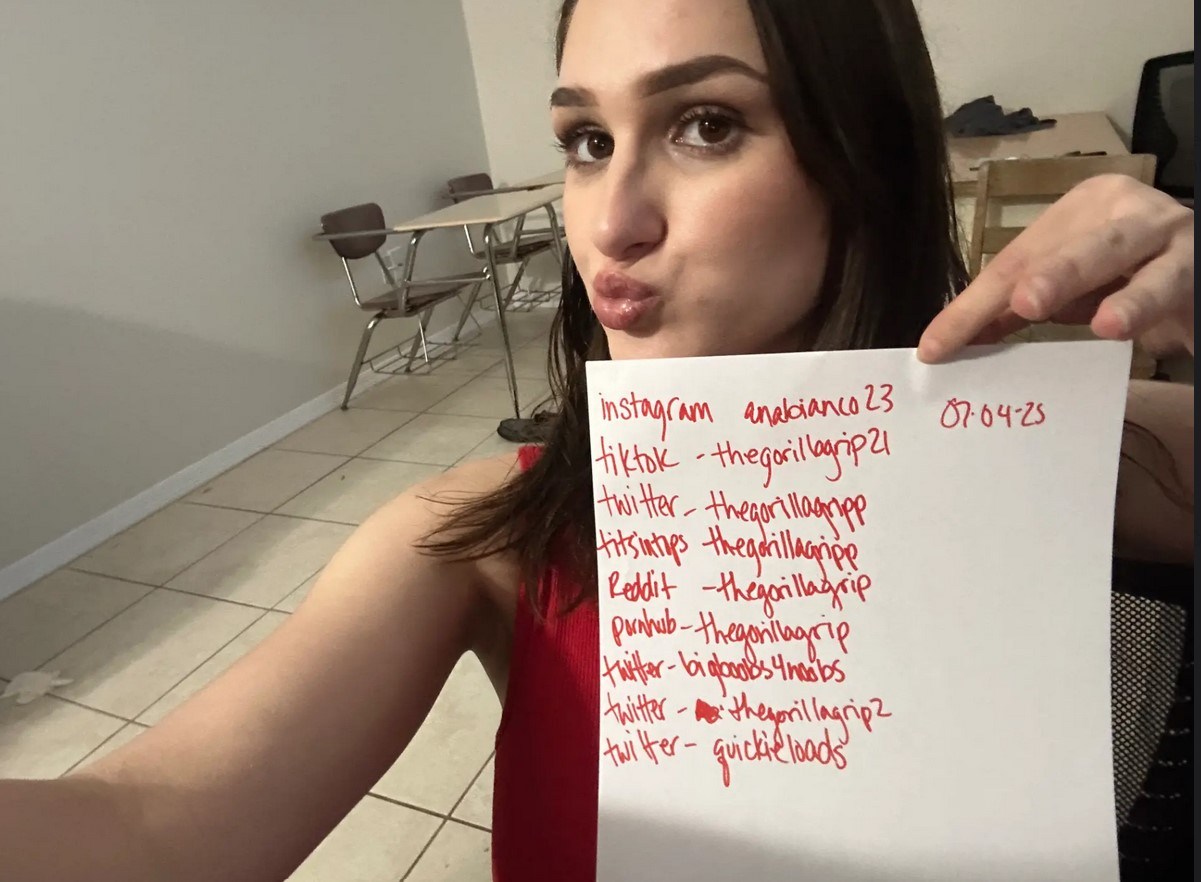 instagram anabianco23 07-04-25
tiktok - thegorillagrip21
twitter - thegorillagripp
titsintops - thegorillagripp
Reddit - thegorillagrip
pornhub - thegorillagrip
twitter - bigboobs4noobs
twitter - thegorillagrip2
twitter - quickieloads